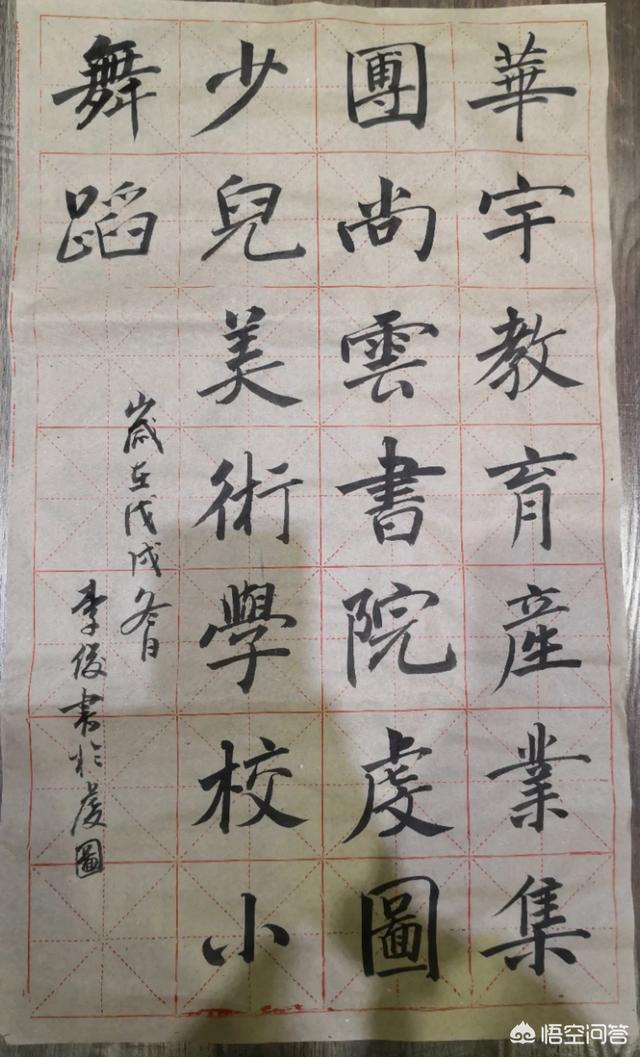 華宇教育産業集
團尚雲書院虔圖
少兒美術學校小
舞蹈
歲在戊戌冬日
李俊書於虔圖
悟空问答